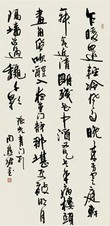 乍暖還輕冷風雨晚來方定庭軒
寂寞近清明殘花中酒又是去年病樓頭
畫角風吹醒入夜重門靜那堪更被明月
隔墙送過秋千影
張先青門引
周慧珺書